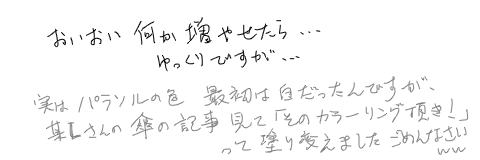 おいおい 何か 増やせたら…
ゆっくりですが…
実は パラソルの色 最初は白だったんですが、
某Lさんの 傘の記事 見て「そのカラーリング頂き！」
って 塗り変えました ごめんなさい
ww